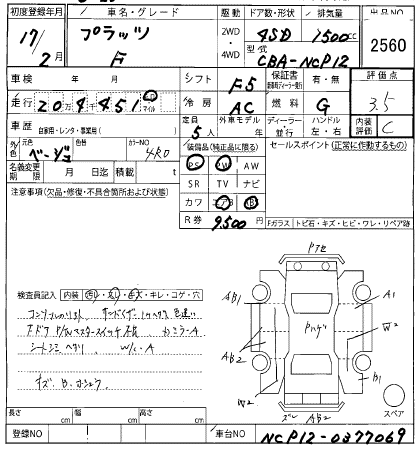 初度登録年月 車名・グレード 駆動 ドア数・形状 排気量 出品NO
17年 2月 プラッツ F 2WD・4WD 4SD 1500cc 2560
型式 CBA-NCP12
車検 年 月 シフト F5 保証書 有・無 評価点
走行 204451 km マイル 冷房 AC 燃料 G 3.5
車歴 自家用・レンタ・事業用( ) 定員 5人 外車モデル 年 ディーラー 並行 ハンドル 左・右 内装評価 C
外色 元色 ベージュ 色替 カラーNO 4R0 装備品(純正品に限る) セールスポイント(正常に作動するもの)
PS PW AW
名義変更期限 月 日迄 積載 t SR TV ナビ
注意事項(欠品・修復・不具合箇所および状態) カワ エアB
R券 9,500円
Fガラス トビ石・キズ・ヒビ・ワレ・リペア跡
検査員記入 内装 キレ・コゲ・穴
シートシミ ヘタリ W/C・A
キズ B.
A1
AB1
W2
AB2
B1
W2
AB2
スペア
長さ cm 幅 cm 高さ cm
登録NO 車台NO NCP12-0377069